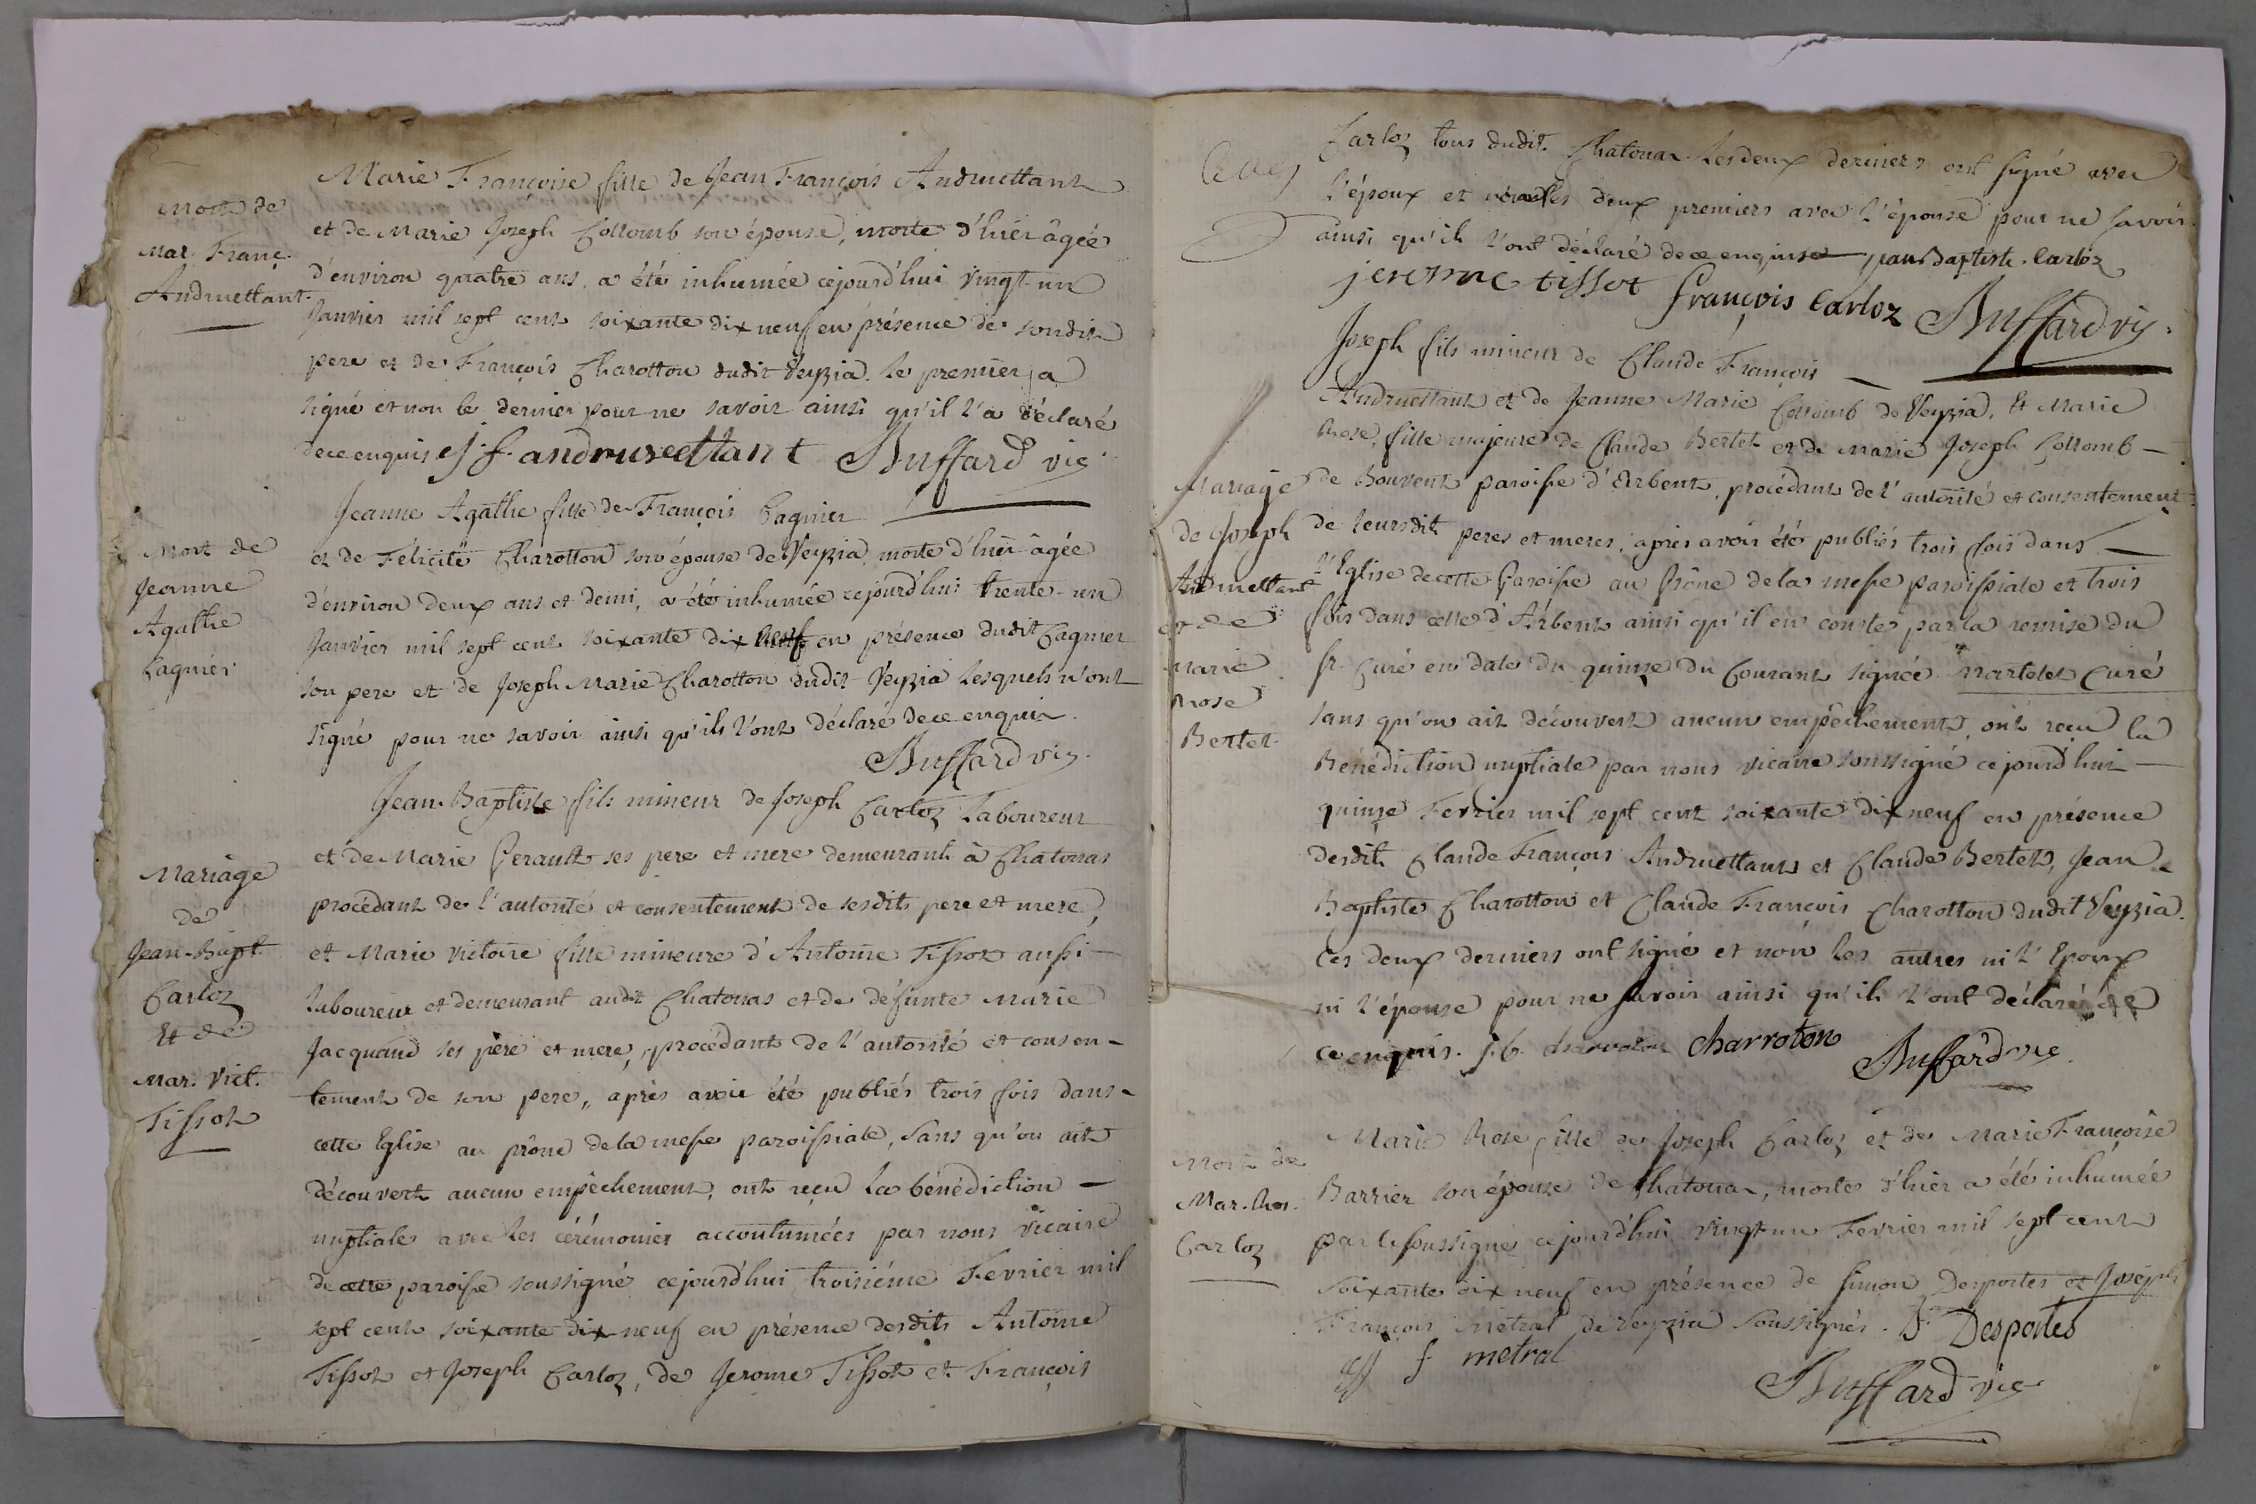 Mort de
Mar. Franç.
Andruettant.
Marie Françoise fille de Jean François Andruettant
et de Marie Joseph Collomb son épouse, morte d'hier âgée
d'environ quatre ans, a été inhumée cejourd'hui vingt-un
Janvier mil sept cent soixante dix neuf en présence de sondit
pere et de François Charotton dudit Veyzia. Le premier a
signé et non le dernier pour ne savoir ainsi qu'il l'a déclaré
dece enquis j f. andruxettant Buffard vic
Mort de
Jeanne
Agathe
Cagnier
Jeanne Agathe fille de François Cagnier
et de Félicité Charotton son épouse de Veyzia morte d'hier âgée
d'environ deux ans et demi, a été inhumée cejourd'hui trente-un
Janvier mil sept cent soixante dix neuf en présence dudit Cagnier
son pere et de Joseph Marie Charotton dudit Veyzia Lesquels n'ont
signé pour ne savoir ainsi qu'ils l'ont déclaré dece enquis.
Buffard vic.
Mariage
de
Jean-Bapt.
Carloz
Et de
Mar. Vict.
Tissot
Jean-Baptiste fils mineur de Joseph Carloz Laboureur
et de Marie Gerault ses pere et mere demeurants à Chatonas
procédant de l'autorité et consentement de sesdits pere et mere,
et Marie Victoire fille mineure d'Antoine Tissot aussi
laboureur et demeurant audit Chatonas et de défunte Marie
Jacquand ses père et mere, procédant de l'autorité et consen-
tement de son pere, après avoir été publiés trois fois dans
cette Eglise au prône de la messe paroissiale, sans qu'on ait
découvert aucun empêchement, ont reçu la bénédiction
nuptiale avec les cérémonies accoutumées par nous vicaire
de cette paroisse soussigné cejourd'hui troisiéme Fevrier mil
sept cent soixante dix neuf en présence desdits Antoine
Tissot et Joseph Carloz, de Jerome Tissot et François
Carloz tous dudit Chatonas Les deux derniers ont signé avec
l'époux et non les deux premiers avec l'épouse pour ne savoir
ainsi qu'ils l'ont déclaré dece enquis jean Baptiste. Carloz
jerosme tissot françois Carloz Buffard vic.
Mariage
de Joseph
Andruettant
et de
Marie
Rose
Bertet.
Joseph fils mineur de Claude François
Andruettant et de Jeanne Marie Collomb de Veyzia, Et Marie
Rose, fille majeure de Claude Bertet et de Marie Joseph Collomb
de Bouvent paroisse d'Arbent, procédant de l'autorité et consentement
de leursdits peres et meres, après avoir été publiés trois fois dans
l'Eglise decette Paroisse au Prône dela messe paroissiale et trois
fois dans celle d'Arbent ainsi qu'il en conste par la remise du
sr Curé en date du quinze du Courant signée Martelet Curé
sans qu'on ait découvert aucun empêchement, ont reçu la
Bénédiction nuptiale par nous vicaire soussigné cejourd'hui
quinze Fevrier mil sept cent soixante dix neuf en présence
desdits Claude François Andruettant et Claude Bertet, Jean
Baptiste Charotton et Claude François Charotton dudit Veyzia.
Ces deux derniers ont signé et non les autres ni l'Epoux
ni l'épouse pour ne savoir ainsi qu'ils l'ont déclaré de
ce enquis. j. b. charroton Charroton Buffard vic.
Mort de
Mar. Ros.
Carloz
Marie Rose fille de Joseph Carloz et de Marie Françoise
Barrier son épouse de Chatonas, morte d'hier a été inhumée
par le soussigné cejourd'hui vingt un Fevrier mil sept cent
soixante dix neuf en présence de Simon Desportes et Joseph
François Métral de Veyzia soussignés. Sn Desportes
J f metral
Buffard vic